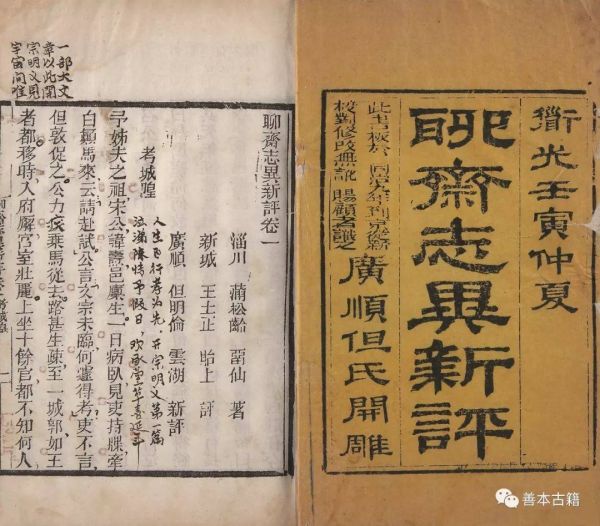 衜光壬寅仲夏
聊齋志異新評
廣順但氏開雕
校對修改無訛 賜顧者識之
聊齋志異新評卷一
淄川 蒲松齡 留仙 著
新城 王士正 貽上 評
廣順 但明倫 雲湖 新評
人生百行孝為先,开宗明义第一篇
考城隍
予姊夫之祖宋公諱燾邑廩生一日病臥見吏持牒牽
白顛馬來云請赴試公言文宗未臨何遽得考吏不言
但敦促之公力疾乘馬從去路甚生疎至一城郭如王
者都移時入府廨宮室壯麗上坐十餘官都不知何人
一部大文
章以此開
宗明义見
宇宙间唯
善本古籍